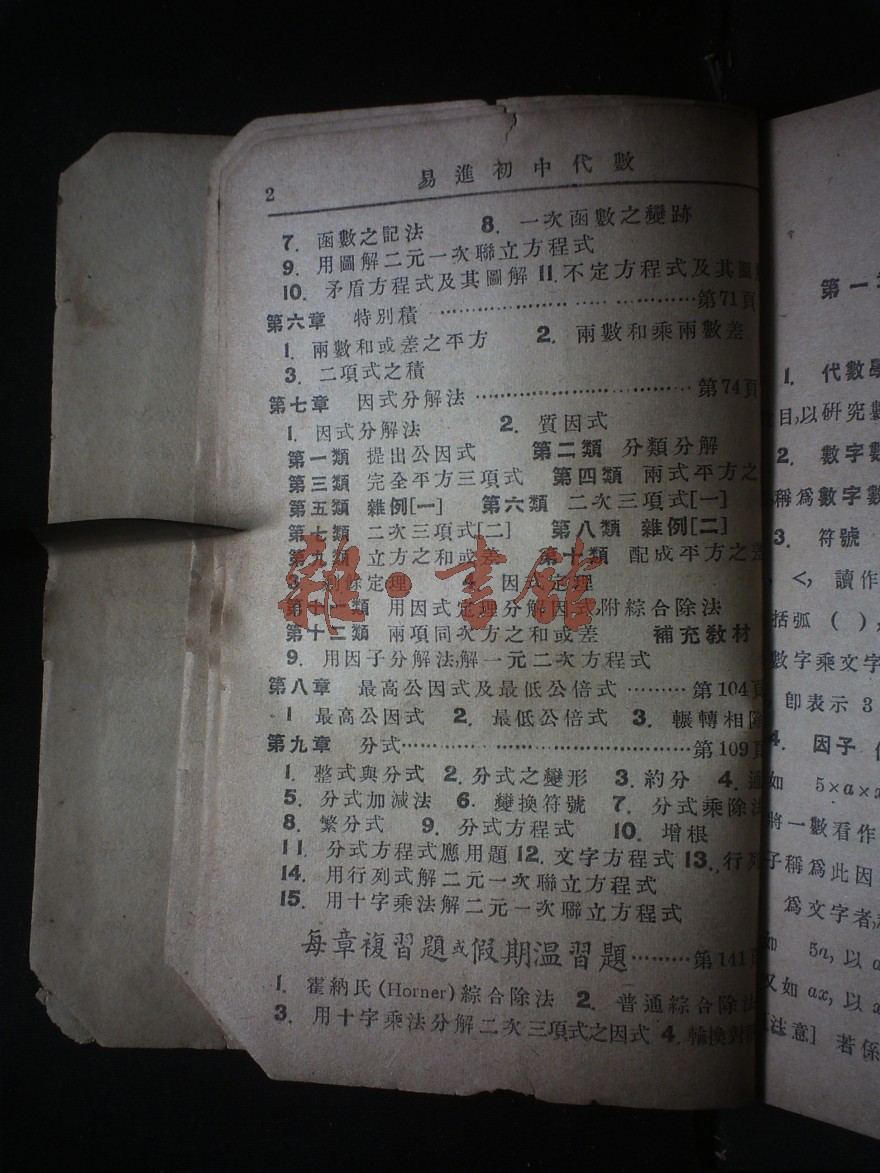 2 易進初中代數
7. 函數之記法 8. 一次函數之變跡
9. 用圖解二元一次聯立方程式
10. 矛盾方程式及其圖解 11. 不定方程式及其圖
第六章 特別積 ……………………第71頁
1. 兩數和或差之平方 2. 兩數和乘兩數差
3. 二項式之積
第七章 因式分解法……………………第74頁
1. 因式分解法 2. 質因式
第一類 提出公因式 第二類 分類分解
第三類 完全平方三項式 第四類 兩式平方之
第五類 雜例[一] 第六類 二次三項式[一]
第七類 二次三項式[二] 第八類 雜例[二]
第九類 立方之和或差 第十類 配成平方之差
3. 剩餘定理 4. 因式定理
第十一類 用因式定理分解因式,附綜合除法
第十二類 兩項同次方之和或差 補充教材
9. 用因子分解法,解一元二次方程式
第八章 最高公因式及最低公倍式………第104頁
1 最高公因式 2. 最低公倍式 3. 輾轉相除
第九章 分式……………………………第109頁
1. 整式與分式 2. 分式之變形 3. 約分 4. 通
5. 分式加減法 6. 變換符號 7. 分式乘除法
8. 繁分式 9. 分式方程式 10. 增根
11. 分式方程式應用題 12. 文字方程式 13. 行列
14. 用行列式解二元一次聯立方程式
15. 用十字乘法解二元一次聯立方程式
每章複習題或假期溫習題………第141頁
1. 霍納氏(Horner)綜合除法 2. 普通綜合除法
3. 用十字乘法分解二次三項式之因式 4. 輪換對
雜·書館
第一
1. 代數學
目,以研究數
2. 數字數
稱爲數字數
3. 符號
<, 讀作
括弧 ( ),
數字乘文字
卽表示 3
4. 因子
如 5×a×
將一數看作
子稱爲此因
爲文字者,
如 5a, 以
又如 ax, 以
[注意] 若係